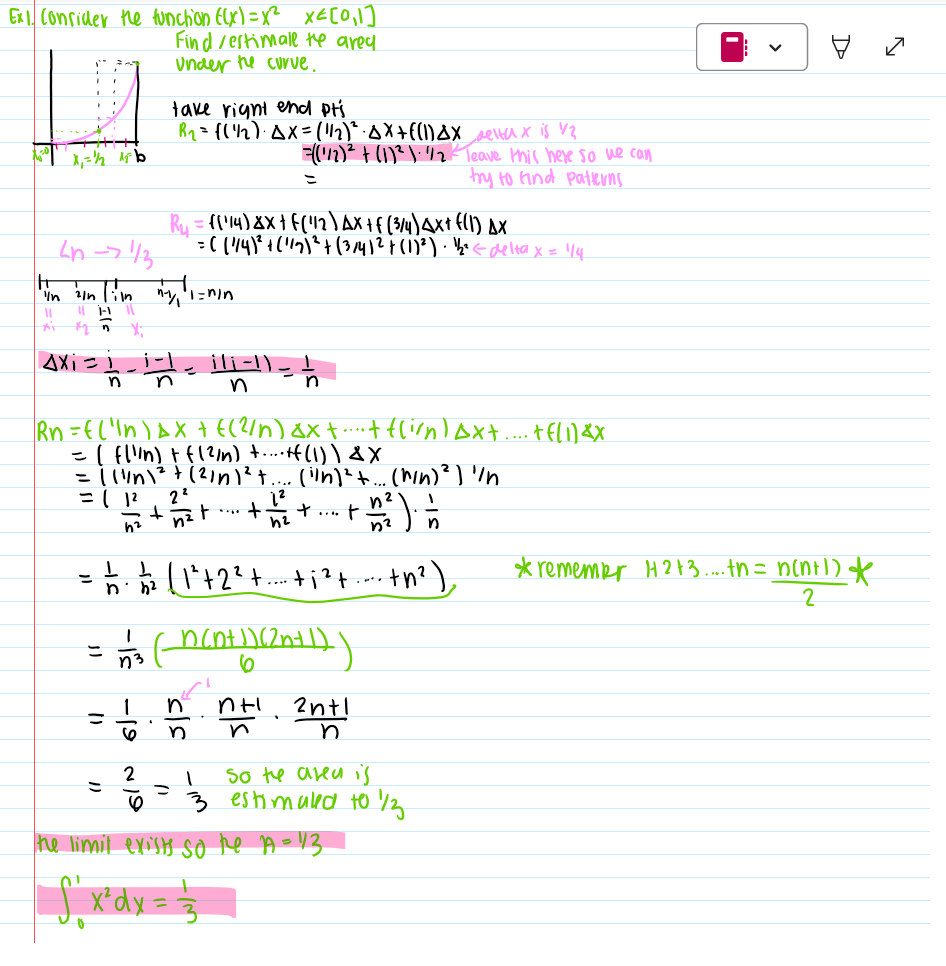 Ex1. Consider the function f(x)=x² x∈[0,1]
Find/estimate the area
under the curve.
take right end pts
R₂ = f(1/2)·Δx = (1/2)²·Δx+f(1)Δx
=((1/2)² + (1)²)·1/2
=
delta x is 1/2
leave this here so we can
try to find patterns
x₀=0 x₁=1/2 b
R₄ = f(1/4)Δx + f(1/2)Δx + f(3/4)Δx + f(1) Δx
= ( (1/4)² + (1/2)² + (3/4)² + (1)²) · 1/2² ← delta x = 1/4
Ln → 1/3
1/n 2/n i/n 1=n/n
i-1/n
x₂ xᵢ
Δxi = i/n - i-1/n = i(i-1)/n = 1/n
Rn = f(1/n)Δx + f(2/n)Δx + ···· + f(i/n)Δx + .... + f(1)Δx
= ( f(1/n) + f(2/n) + ....+f(1)) Δx
= ((1/n)² + (2/n)² + .... (i/n)² + ... (n/n)²) 1/n
= ( 1²/n² + 2²/n² + .... + i²/n² + .... + n²/n² ) · 1/n
= 1/n · 1/n² (1² + 2² + .... + i² + .... + n²)
*remember 1+2+3....+n = n(n+1)/2 *
= 1/n³ ( n(n+1)(2n+1)/6 )
1
= 1/6 · n/n · n+1/n · 2n+1/n
= 2/6 = 1/3 so the area is
estimated to 1/3
the limit exists so the A = 1/3
∫₀¹ x²dx = 1/3